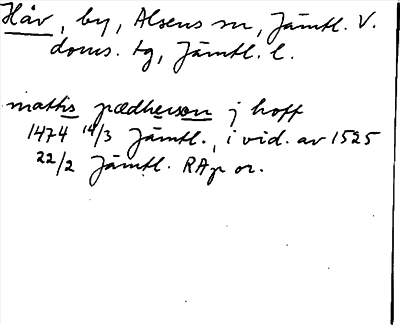 Håv, by, Alsens sn, Jämtl. V.
doms. tg, Jämtl. l.
mathis pædherson j hoff
1474 14/3 Jämtl., i vid. av 1525
22/2 Jämtl. RAp or.